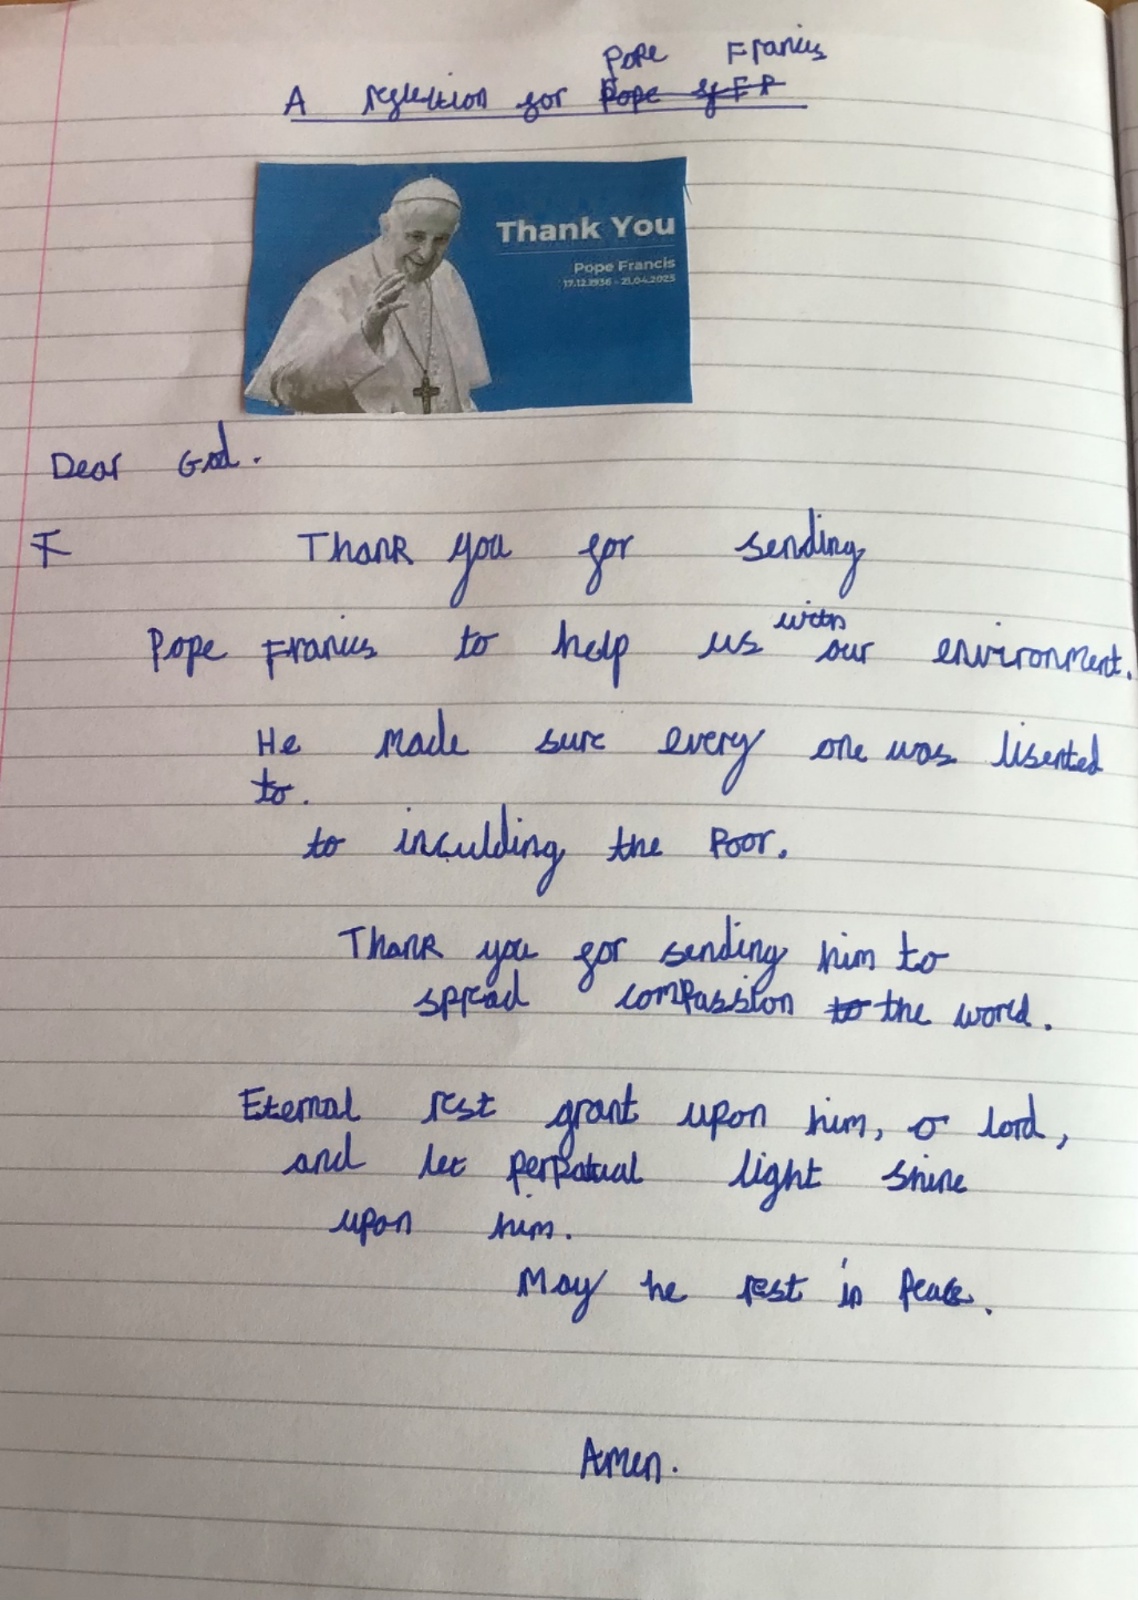 Pope Francis
A reflection for Pope of F P
Thank You
Pope Francis
17.12.1936 - 21.04.2025
Dear God.
T Thank you for sending
with
Pope Francis to help us our environment.
He made sure every one was lisented
to.
to inculding the Poor.
Thank you for sending him to
spread compassion to the world.
Eternal rest grant upon him, o lord,
and let perpatual light shine
upon him.
May he rest in Peace.
Amen.